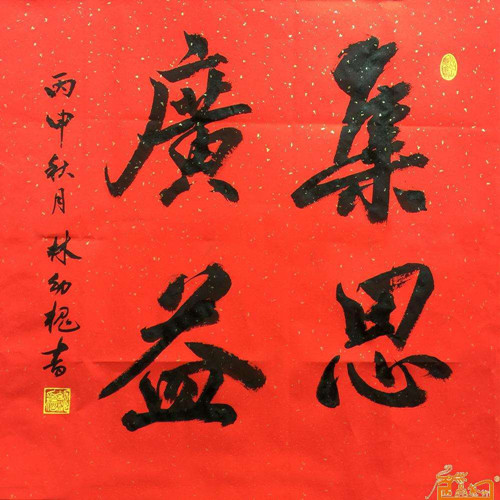 集思
廣益
丙申秋月 林幼槐書